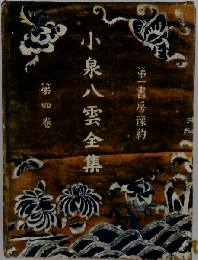 第一書房豫約
小泉八雲全集
第四巻